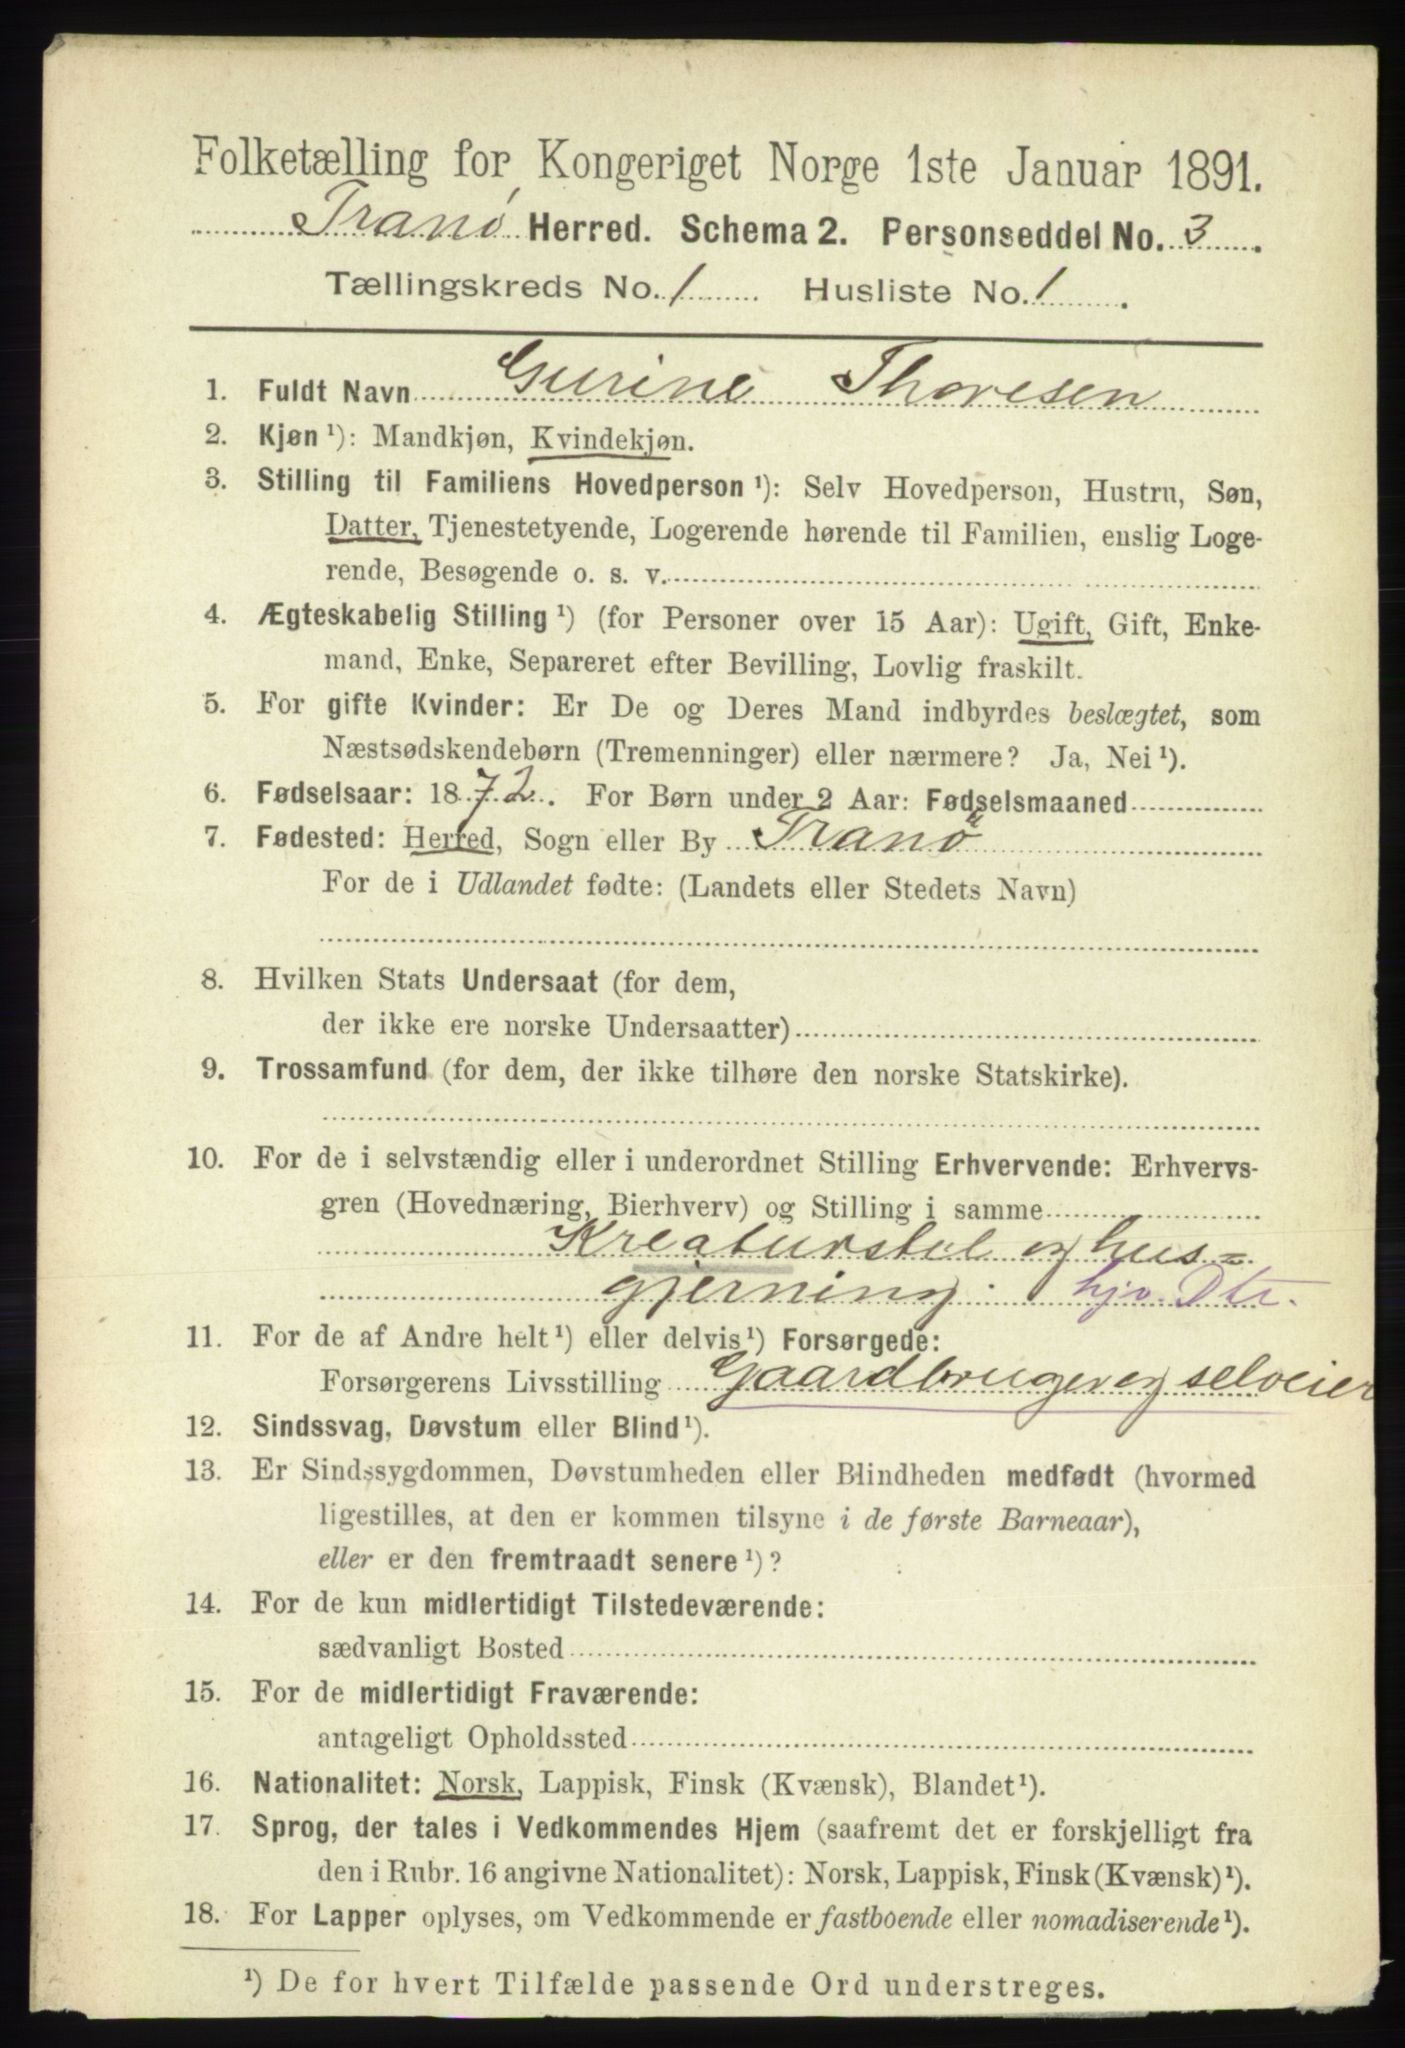 Folketælling for Kongeriget Norge 1ste Januar 1891.
Tranø Herred. Schema 2. Personseddel No. 3.
Tællingskreds No. 1 Husliste No. 1.
1. Fuldt Navn Gurine Thoresen
2. Kjøn ¹): Mandkjøn, Kvindekjøn.
3. Stilling til Familiens Hovedperson ¹): Selv Hovedperson, Hustru, Søn,
Datter, Tjenestetyende, Logerende hørende til Familien, enslig Loge-
rende, Besøgende o. s. v.
4. Ægteskabelig Stilling ¹) (for Personer over 15 Aar): Ugift, Gift, Enke-
mand, Enke, Separeret efter Bevilling, Lovlig fraskilt.
5. For gifte Kvinder: Er De og Deres Mand indbyrdes beslægtet, som
Næstsødskendebørn (Tremenninger) eller nærmere? Ja, Nei ¹).
6. Fødselsaar: 1872. For Børn under 2 Aar: Fødselsmaaned
7. Fødested: Herred, Sogn eller By Tranø
For de i Udlandet fødte: (Landets eller Stedets Navn)
8. Hvilken Stats Undersaat (for dem,
der ikke ere norske Undersaatter)
9. Trossamfund (for dem, der ikke tilhøre den norske Statskirke).
10. For de i selvstændig eller i underordnet Stilling Erhvervende: Erhvervs-
gren (Hovednæring, Bierhverv) og Stilling i samme
Kreaturstel og hus=
gjerning. hjv. Dtr.
11. For de af Andre helt ¹) eller delvis ¹) Forsørgede:
Forsørgerens Livsstilling Gaardbruger og selveier
12. Sindssvag, Døvstum eller Blind ¹).
13. Er Sindssygdommen, Døvstumheden eller Blindheden medfødt (hvormed
ligestilles, at den er kommen tilsyne i de første Barneaar),
eller er den fremtraadt senere ¹)?
14. For de kun midlertidigt Tilstedeværende:
sædvanligt Bosted
15. For de midlertidigt Fraværende:
antageligt Opholdssted
16. Nationalitet: Norsk, Lappisk, Finsk (Kvænsk), Blandet ¹).
17. Sprog, der tales i Vedkommendes Hjem (saafremt det er forskjelligt fra
den i Rubr. 16 angivne Nationalitet): Norsk, Lappisk, Finsk (Kvænsk) ¹).
18. For Lapper oplyses, om Vedkommende er fastboende eller nomadiserende ¹).
¹) De for hvert Tilfælde passende Ord understreges.